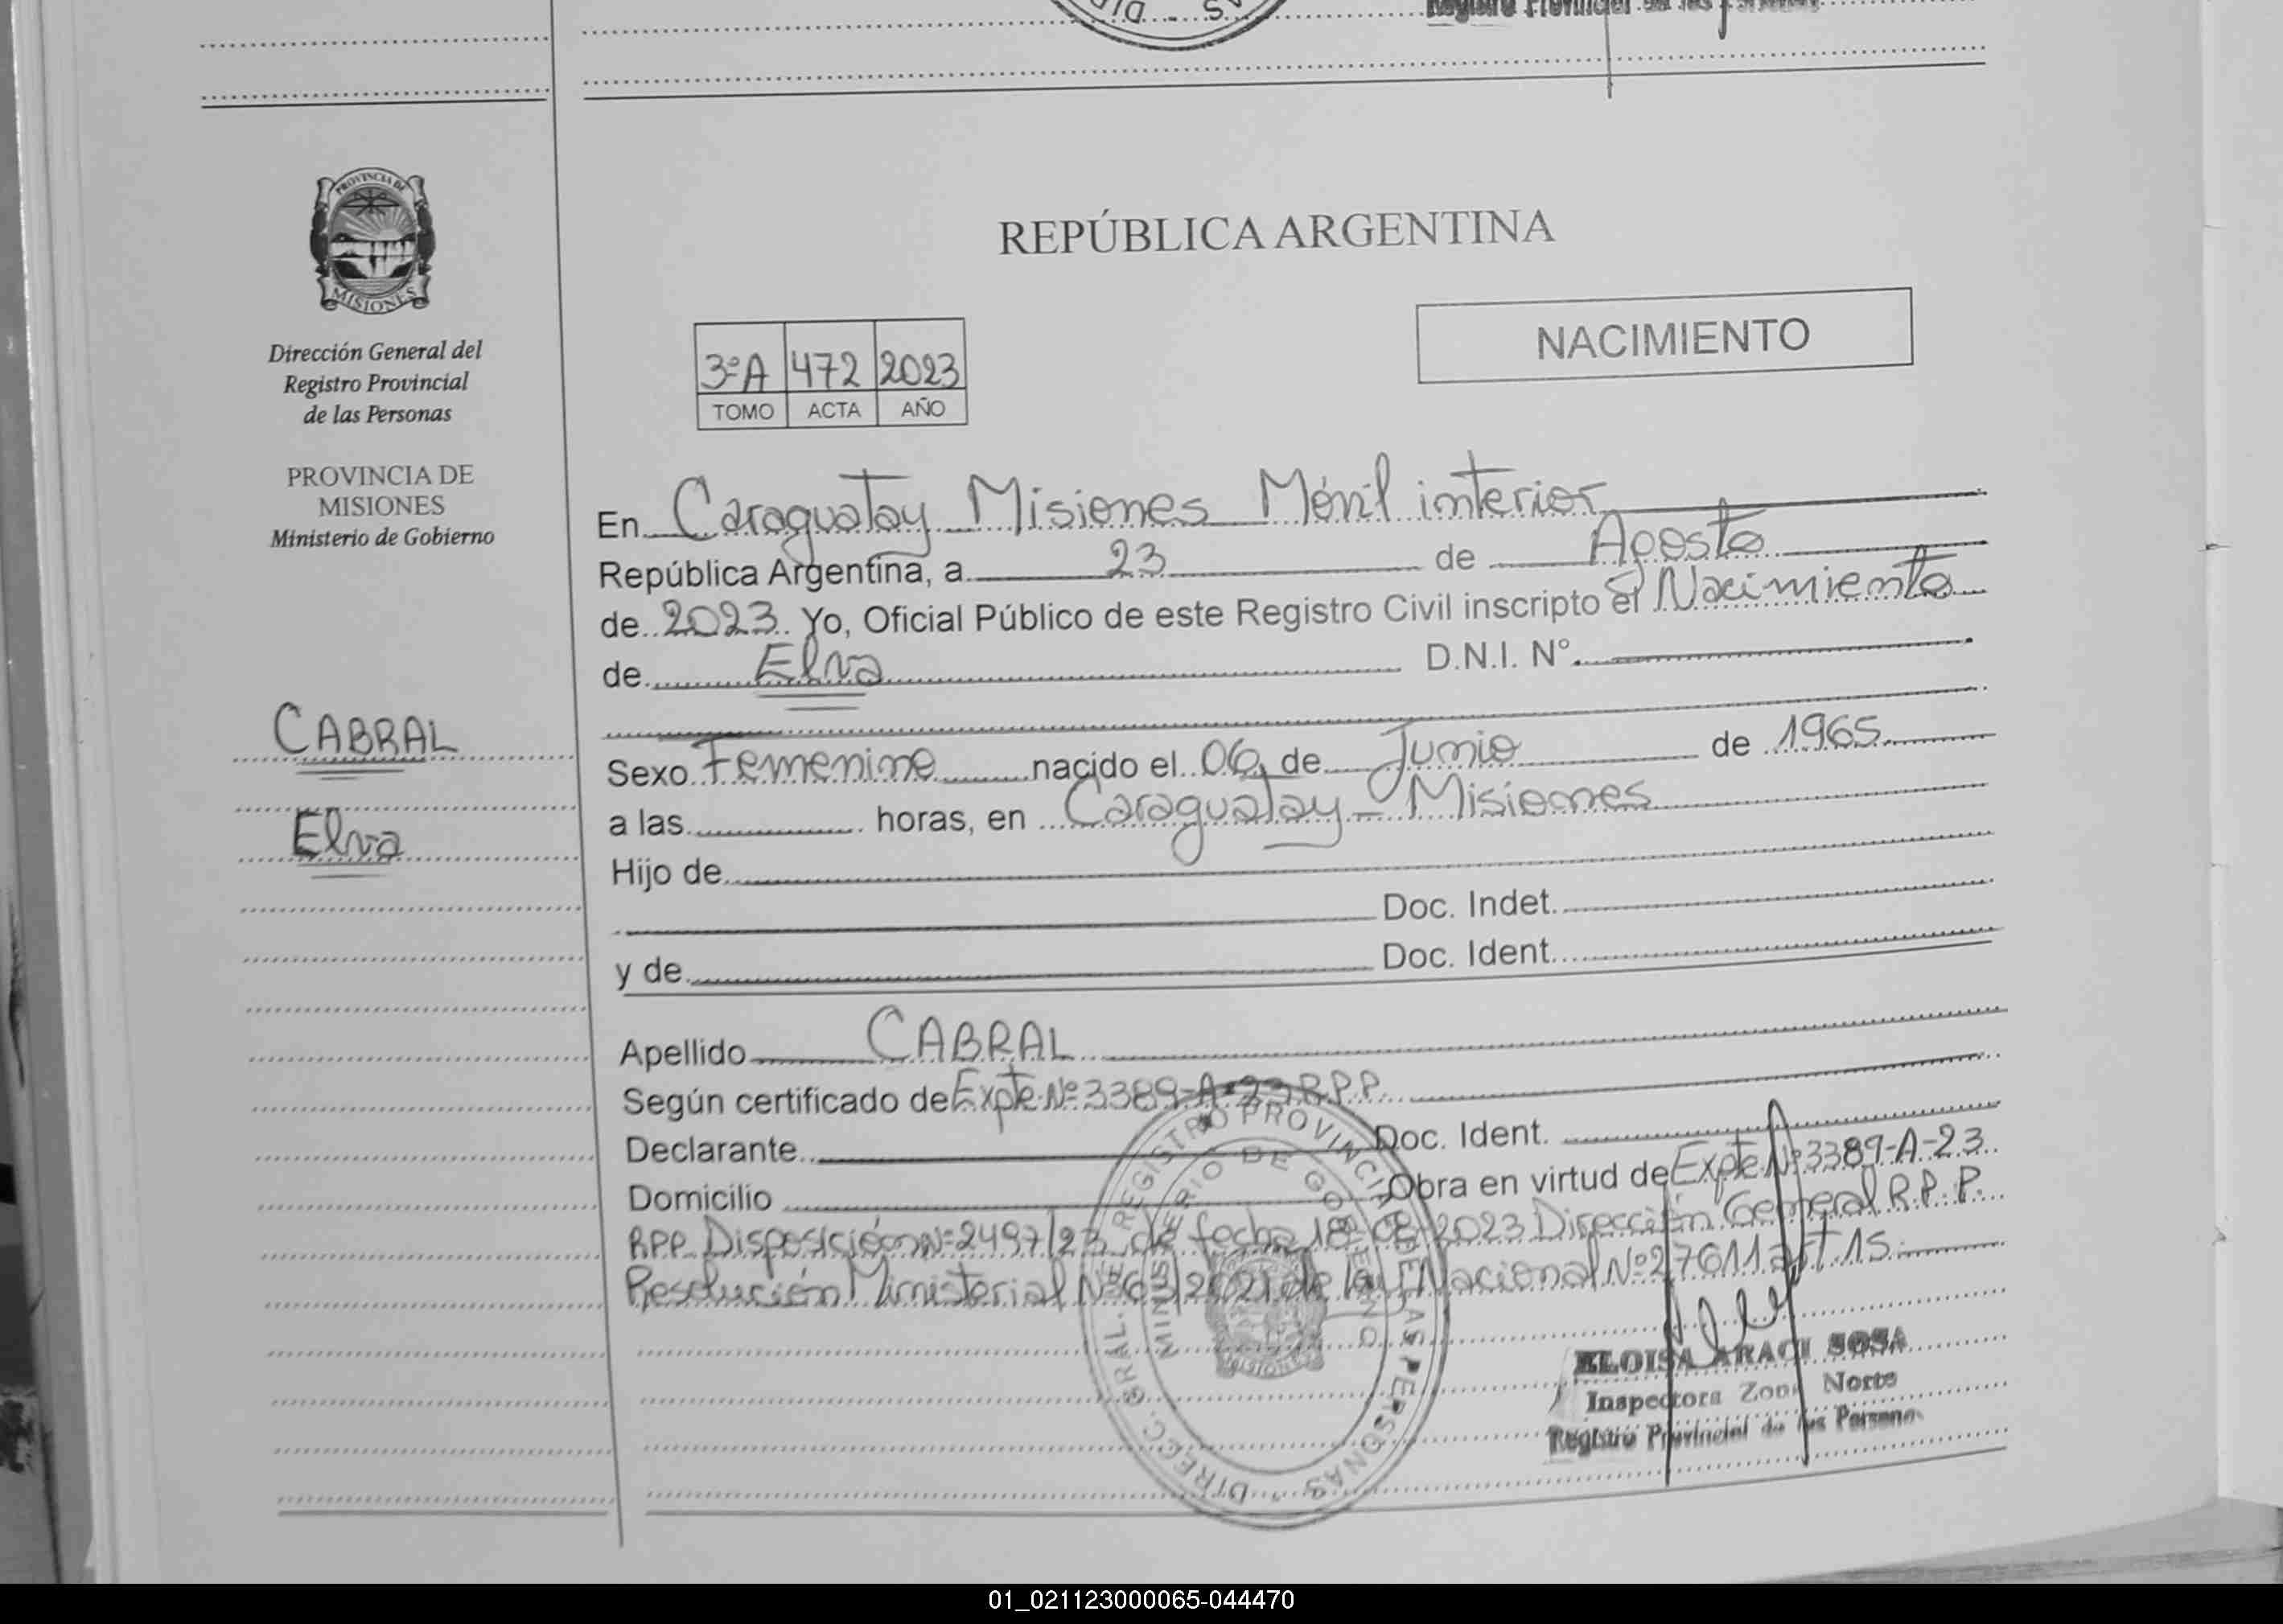 Registro Provincial de las Personas
PROVINCIA DE
MISIONES
Dirección General del
Registro Provincial
de las Personas
PROVINCIA DE
MISIONES
Ministerio de Gobierno
CABRAL
Elva
REPÚBLICA ARGENTINA
NACIMIENTO
3ºA 472 2023
TOMO ACTA AÑO
En Caraguatay Misiones Móvil interior
República Argentina, a 23 de Agosto
de 2023 Yo, Oficial Público de este Registro Civil inscripto el Nacimiento
de Elva D.N.I. N°
Sexo Femenino nacido el 06 de Junio de 1965
a las horas, en Caraguatay - Misiones
Hijo de
Doc. Indet.
y de Doc. Ident.
Apellido CABRAL
Según certificado de Expte Nº 3389-A-23 R.P.P.
Declarante Doc. Ident.
Domicilio Obra en virtud de Expte Nº 3389-A-23
RPP Disposición Nº 2497/23 de fecha 18-08-2023 Dirección General R.P.P.
Resolución Ministerial Nº 63/2021 de la Nacional Nº 27611 art 15.
DIREC. GRAL. DE REGISTRO PROVINCIAL DE LAS PERSONAS
MINISTERIO DE GOBIERNO
MISIONES
ELOISA ARACI SOSA
Inspectora Zona Norte
Registro Provincial de las Personas
01_021123000065-044470